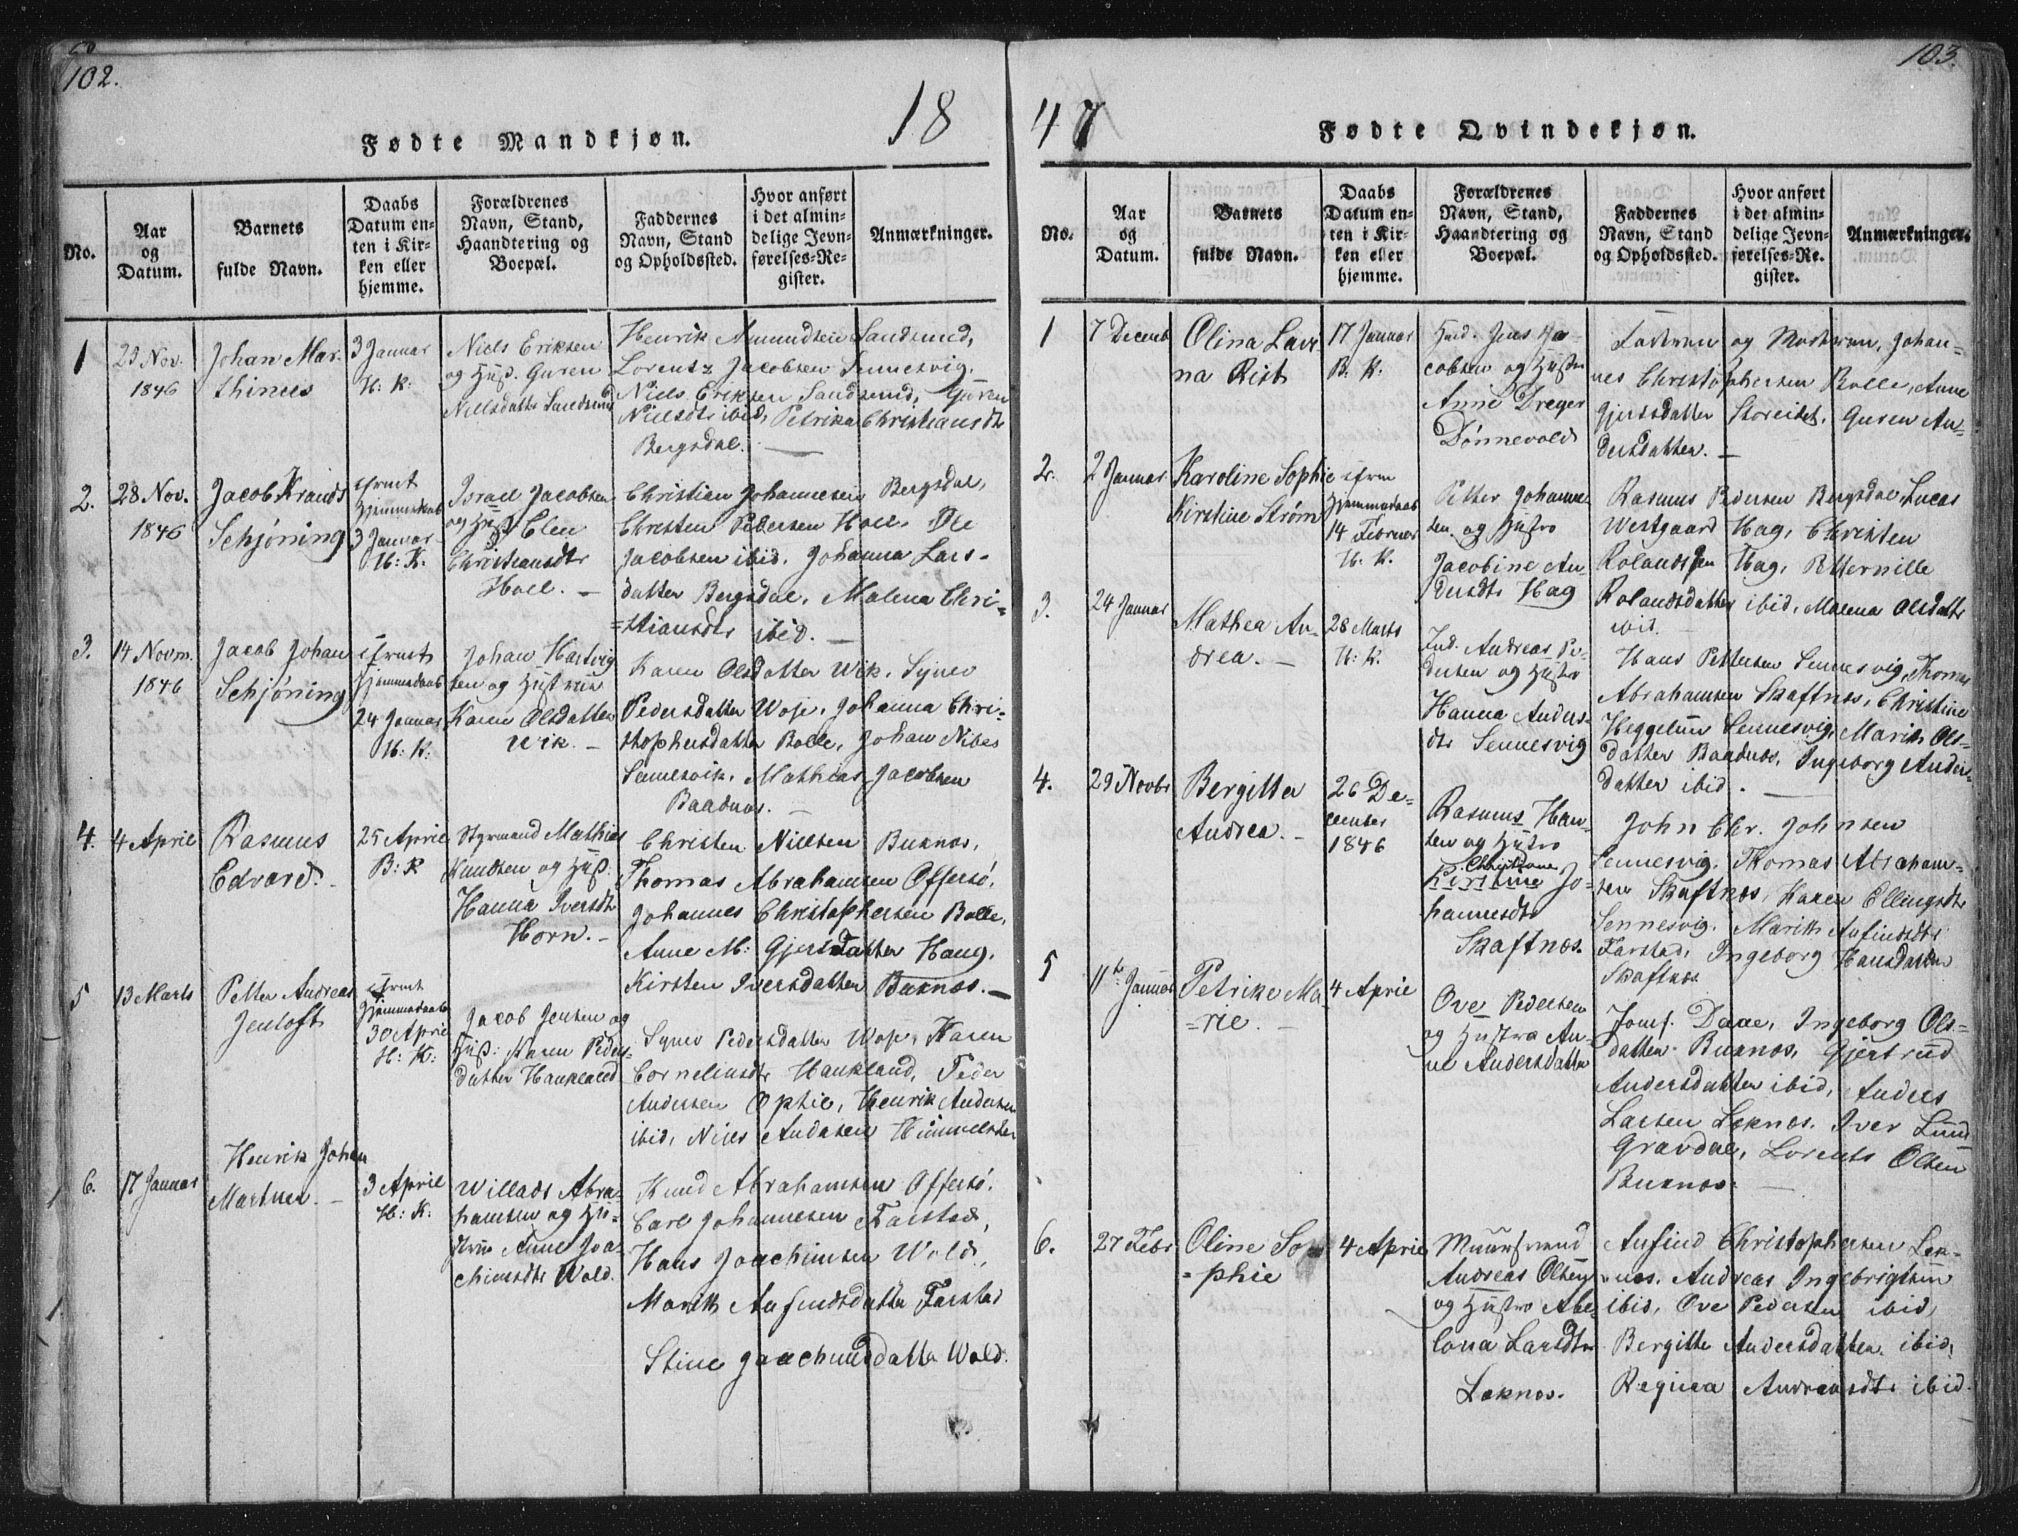 102.
18
Fødte Mandkjøn.
No.
Aar
og
Datum.
Barnets
fulde Navn.
Daabs
Datum en-
ten i Kir-
ken eller
hjemme.
Forældrenes
Navn, Stand,
Haandtering og
Boepæl.
Faddernes
Navn, Stand
og Opholdssted.
Hvor anført
i det almin-
delige Jevn-
førelses-Re-
gister.
Anmærkninger.
1
23 Nov.
1846
Johan Mar-
thinus
3 Januar
H: K:
Niels Eriksen
og Hust. Guren
Nielsdatter Sandsund
Henrik Amundsen Sandsund,
Lorents Jacobsen Sennesvig.
Niels Eriksen Sandsund, Guren
Nielsdtr ibid, Petrika Christiansdtr
Bergsdal. —
2.
28 Nov.
1846
Jacob
Schjøning
Hjemmedaab
3 Januar
H: K.
Israel Jacobsen
og Hust. Elen
Christiansdtr
Hoel. —
Christian Johannesen Bergsdal,
Christen Pedersen Hoel. Ole
Jacobsen ibid. Johanna Lars-
datter Bergsdal, Malena Chri-
=stiansdtr ibid. —
3.
14 Novm.
1846
Jacob Johan
Schjøning
Hjemmedaab
24 Januar
H: K:
Johan Hartvig
sen og Hustrue
Karen Olsdatter
Wik. —
Karen Olsdatter Wik. Synev
Pedersdatter Woje. Johanna Chri-
stophersdatter Bolle, Johan
Sennesvik. Mathias Jacobsen
Baadnæs. —
4.
4 April
Rasmus
Edvard. -
25 April
B: K
Styrmand Mathias
Knudsen og Hust:
Hanna Iversdtr
Horn. -
Christen Nielsen Buknæs,
Thomas Abrahamsen Offersø,
Johannes Christophersen Bolle,
Anne M: Gjertsdatter Haug,
Kirsten Iversdatter Buknæs. —
5
13 Marts
Petter Andreas
Jentoft
Hjemmedaab
30 April
H: K:
Jacob Jensen og
Hust: Karen Peders-
datter Haukland
Synev Pedersdatter Woje, Karen
Corneliusdtr Haukland, Peder
Andersen Ophie, Henrik Andersen
ibid, Niels Andersen
6.
17 Januar
Henrik Johan
Martner. —
3 April
H: K:
Willads Abra-
hamsen og Hu-
strue Anne Joa-
chimsdtr Wold.
Knud Abrahamsen Offersø.
Carl Johannesen Farstad,
Hans Joachimsen Wold,
Marith Anfindsdatter Farstad
Stine Joachimsdatter Wold.
103.
47
Fødte Qvindekjøn.
No.
Aar
og
Datum.
Barnets
fulde Navn.
Daabs
Datum en-
ten i Kir-
ken eller
hjemme.
Forældrenes
Navn, Stand,
Haandtering og
Boepæl.
Faddernes
Navn, Stand
og Opholdssted.
Hvor anført
i det almin-
delige Jevn-
førelses-Re-
gister.
Anmærkninger.
1
7 Decemb
Olina Lavi-
na Rist
17 Januar
B. K:
Jens Ja-
cobsen og Hustro
Anne Dreyer
Dønnevold
og Madame, Johan-
nes Christophersen Bolle, Anne
Gjertsdatter Storeidet, Guren An-
dersdatter. —
2.
2 Januar
Karoline Sophie
Kirstine Strøm
Hjemmedaab
14 Februar
H: K.
Petter Johanne-
sen og Hustro
Jacobine An-
dersdtr Hag
Rasmus Pedersen Bergsdal, Lucas
Westgaard Hag, Christen
Rolandsen Hag, Petternille
Rolandsdatter ibid, Malena Olsdatter
ibid.
3.
24 Januar
Mathea An-
drea. —
28 Marts
H: K.
Ind. Andreas Pe-
dersen og Hustro
Hanna Anders-
dtr Sennesvig
Hans Pettersen Sennesvig, Thomas
Abrahamsen Skaftnæs, Christine
Heggelun Sennesvig, Marith Ols-
datter Baadnæs, Ingeborg Anders-
datter ibid. —
4.
29 Novbr
Bergitta
Andrea. -
26 De-
cember
1846
Rasmus Han-
sen og Hustro
Christiane
Kirstine Jo-
hannesdtr
Skaftnæs.
John Chr. Johnsen
Sennesvig. Thomas Abraham-
sen Skaftnæs, Karen Ellingsdtr
Sennesvig. Marith Anfindsdtr
Farstad, Ingeborg Hansdatter
Skaftnæs
5
11te Januar
Petrike Ma-
=rie. —
4 April
Ove Pedersen
og Hustro An-
ne Andersdatter
Josef Daae, Ingeborg Ols-
datter Buknæs, Gjertrud
Andersdatter ibid, Anders
Larsen Leknæs. Iver Lund
Gravdal, Lorents Olsen
Buknæs. —
6.
27 Febr
Oline So-
=phie
4 April
Andreas Olsen
og Hustro Abe-
lona Larsdtr
Leknæs.
Anfind Christophersen Lek-
næs. Andreas Ingebrigtsen
ibid, Ove Pedersen ibid,
Bergitte Andersdatter ibid,
Regina Andreasdtr ibid.